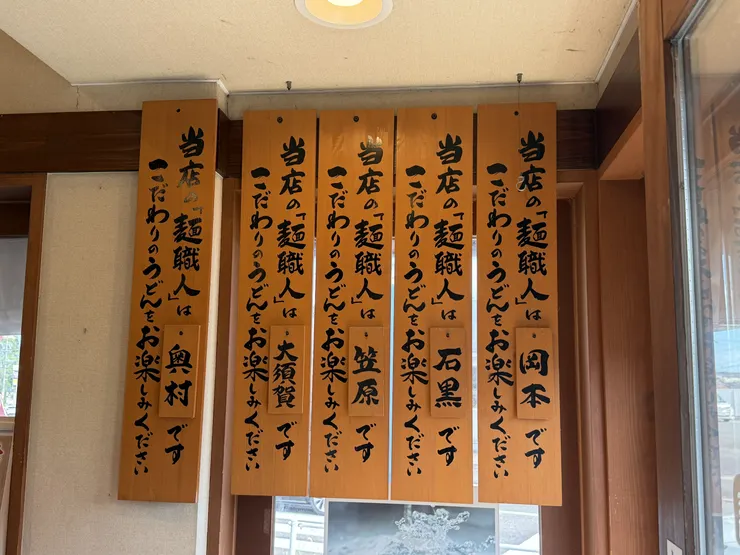 当店の「麺職人」は
岡本
です
こだわりのうどんをお楽しみください
当店の「麺職人」は
石黒
です
こだわりのうどんをお楽しみください
当店の「麺職人」は
笠原
です
こだわりのうどんをお楽しみください
当店の「麺職人」は
大須賀
です
こだわりのうどんをお楽しみください
当店の「麺職人」は
奥村
です
こだわりのうどんをお楽しみください